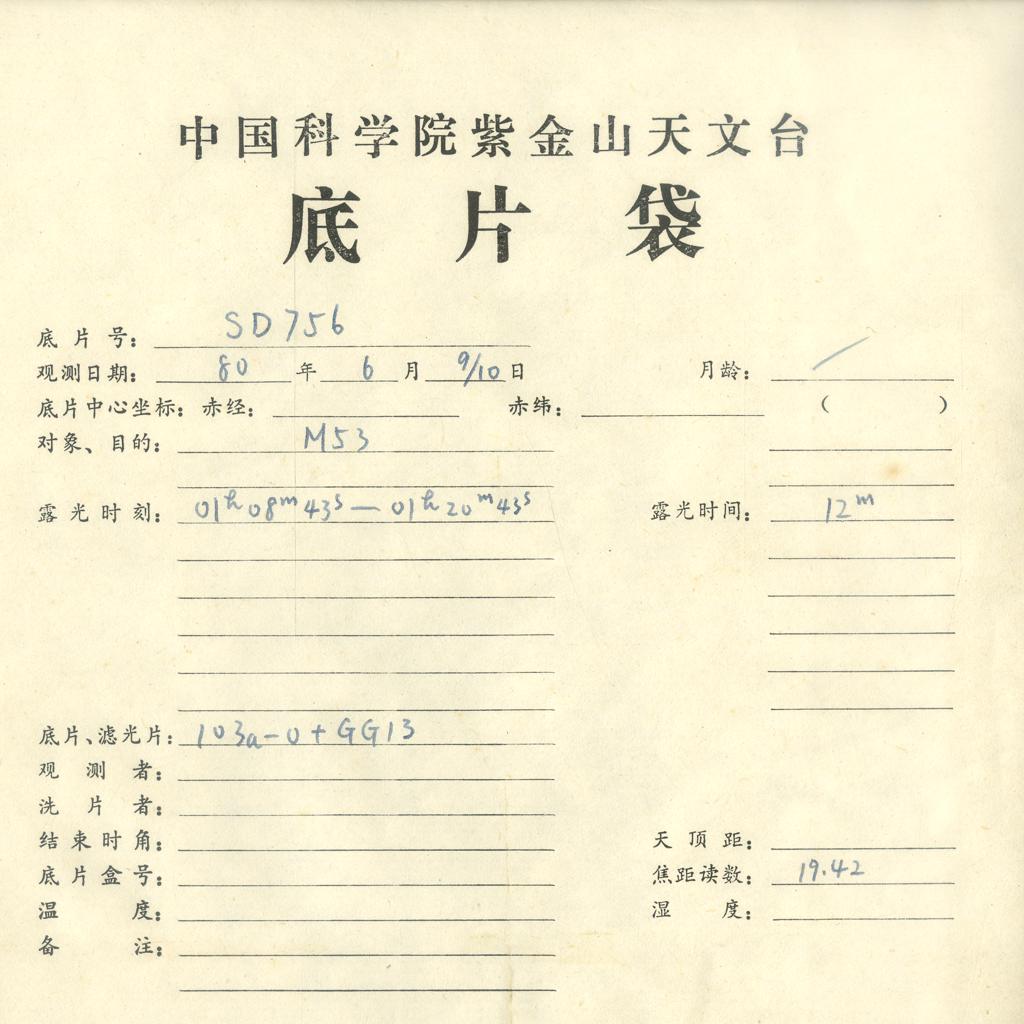 中国科学院紫金山天文台
底片袋
底片号: SD756
观测日期: 80年 6月 9/10日 月龄: /
底片中心坐标: 赤经: 赤纬: ( )
对象、目的: M53
露光时刻: 01h08m43s — 01h20m43s 露光时间: 12m
底片、滤光片: 103a-O + GG13
观测者:
洗片者:
结束时角: 天顶距:
底片盒号: 焦距读数: 19.42
温度: 湿度:
备注: